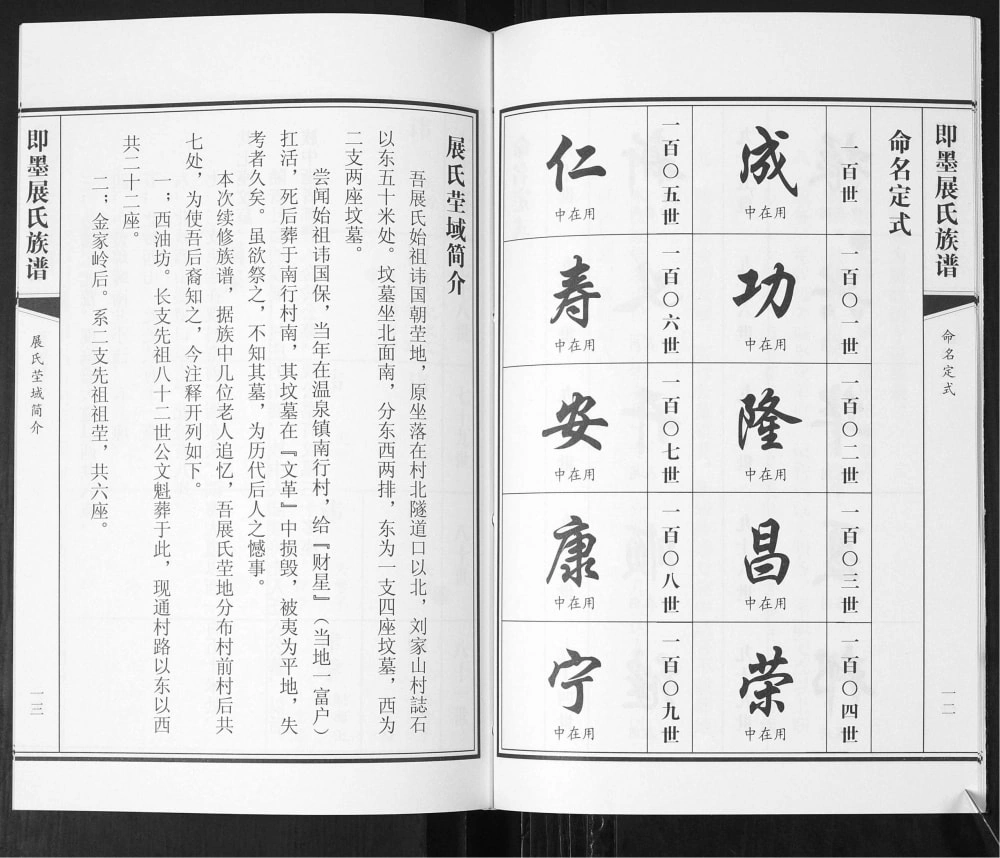 即墨展氏族谱
命名定式
一二
命名定式
一百世
成
中在用
一百〇一世
功
中在用
一百〇二世
隆
中在用
一百〇三世
昌
中在用
一百〇四世
荣
中在用
一百〇五世
仁
中在用
一百〇六世
寿
中在用
一百〇七世
安
中在用
一百〇八世
康
中在用
一百〇九世
宁
中在用
展氏茔域简介
吾展氏始祖讳国朝茔地，原坐落在村北隧道口以北，刘家山村誌石
以东五十米处。坟墓坐北面南，分东西两排，东为一支四座坟墓，西为
二支两座坟墓。
尝闻始祖讳国保，当年在温泉镇南行村，给『财星』（当地一富户）
扛活，死后葬于南行村南，其坟墓在『文革』中损毁，被夷为平地，失
考者久矣。虽欲祭之，不知其墓，为历代后人之憾事。
本次续修族谱，据族中几位老人追忆，吾展氏茔地分布村前村后共
七处，为使吾后裔知之，今注释开列如下。
一，西油坊。长支先祖八十二世公文魁葬于此，现通村路以东以西
共二十二座。
二；金家岭后。系二支先祖祖茔，共六座。
即墨展氏族谱
展氏茔域简介
一三